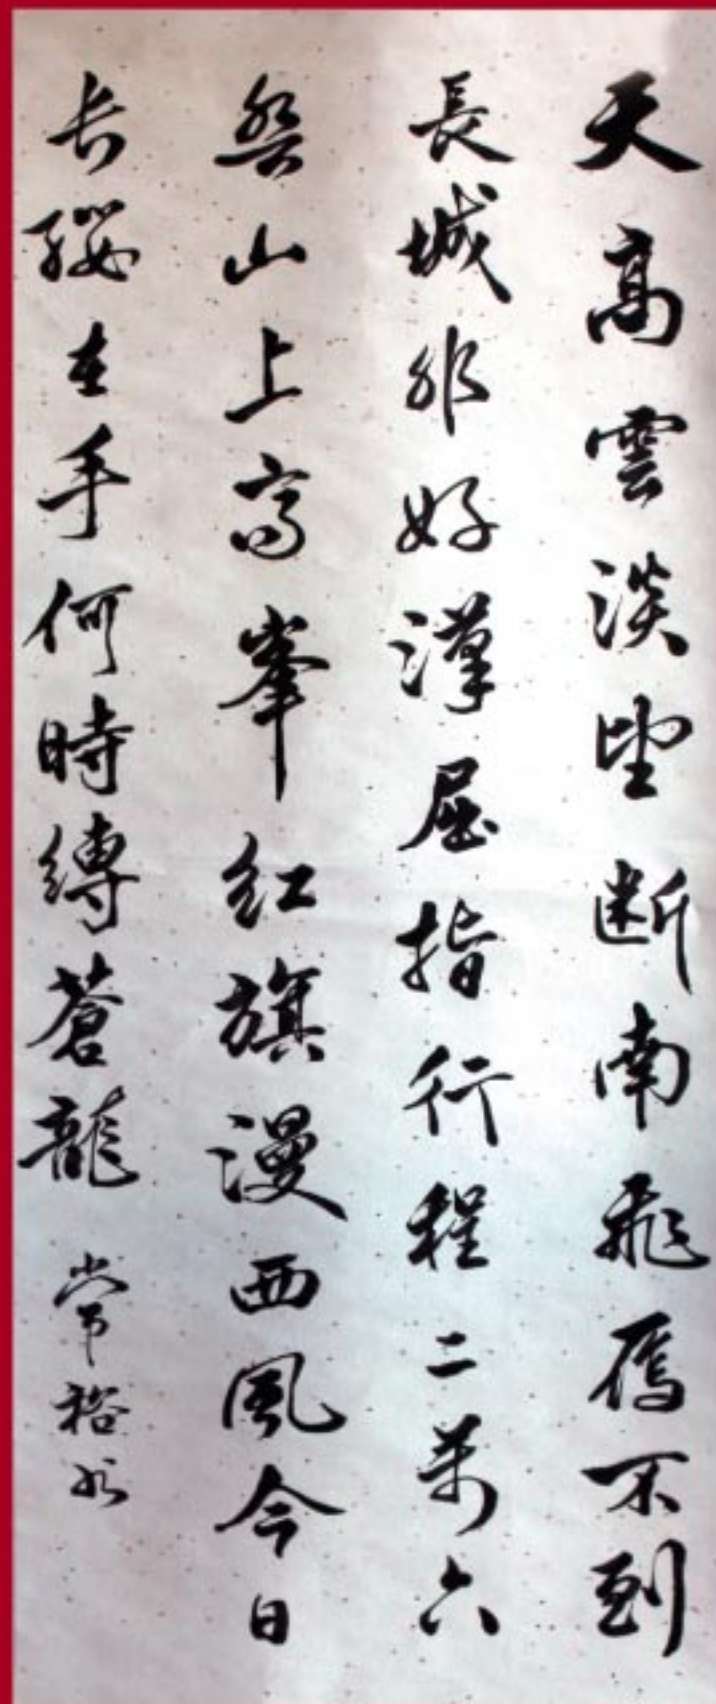 天高雲淡望断南飛雁不到
長城非好漢屈指行程二萬六
盤山上高峯紅旗漫西風今日
长纓在手何時縛蒼龍 常裕